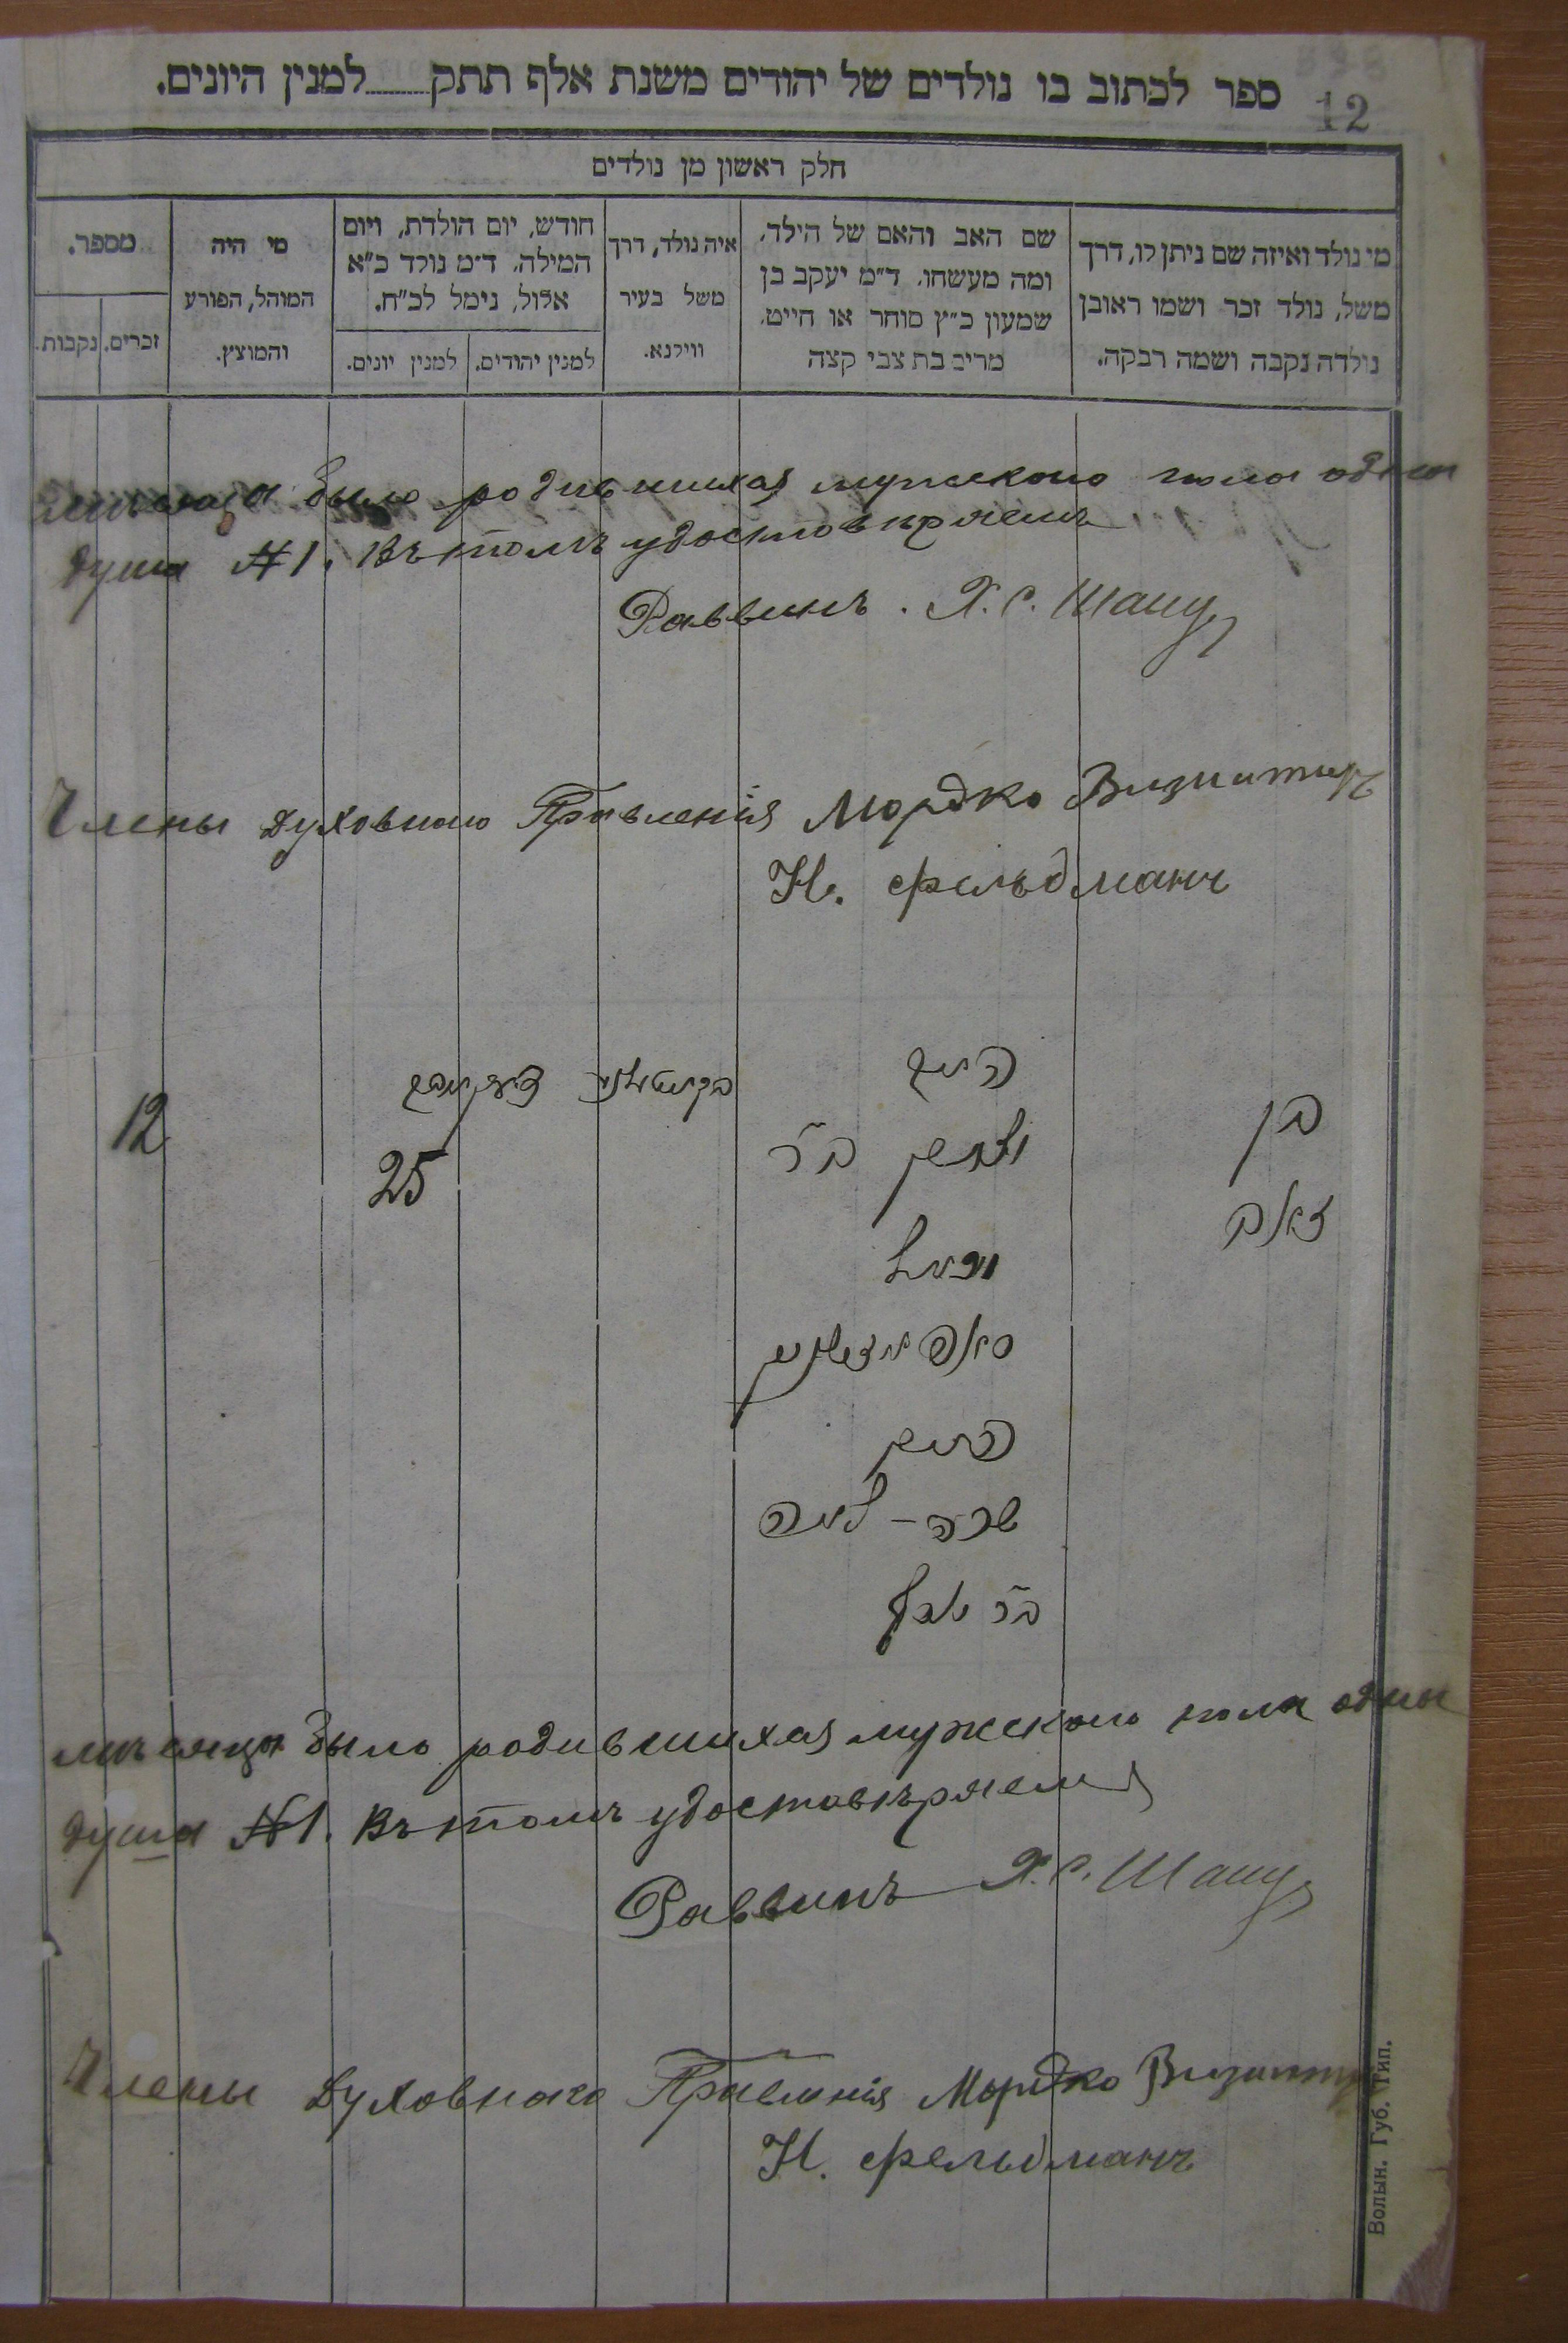 ספר לכתוב בו נולדים של יהודים משנת אלף תתק......למנין היונים.
12
חלק ראשון מן נולדים
מי נולד ואיזה שם ניתן לו, דרך
משל, נולד זכר ושמו ראובן
נולדה נקבה ושמה רבקה.
שם האב והאם של הילד,
ומה מעשהו. ד"מ יעקב בן
שמעון כ"ץ סוחר או חייט.
מרים בת צבי קצה
איה נולד, דרך
משל בעיר
ווילנא.
חודש, יום הולדת, ויום
המילה. ד"מ נולד כ"א
אלול, נימל לכ"ח.
למנין יהודים.
למנין יונים.
מי היה
המוהל, הפורע
והמוצץ.
מספר.
זכרים.
נקבות.
мѣсяца было родившихся мужескаго пола одна
душа №1. Въ томъ удостовѣряемъ
Раввинъ. Х. С. Шацъ
Члены Духовнаго Правленія Мордко
Н. Фельдманъ
12
25
בן
זאב
בר
שרה - לאה
בר
мѣсяца было родившихся мужескаго пола одна
душа №1. Въ томъ удостовѣряемъ
Раввинъ Х. С. Шацъ
Члены Духовнаго Правленія Мордко
Н. Фельдманъ
Волын. Губ. Тип.